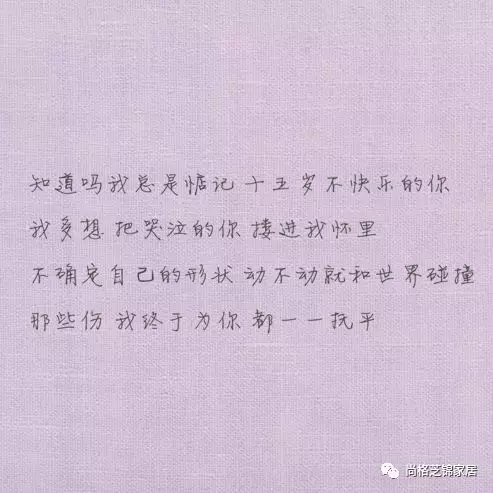 知道吗我总是惦记 十五岁不快乐的你
我多想 把哭泣的你 搂进我怀里
不确定自己的形状 动不动就和世界碰撞
那些伤 我终于为你 都一一抚平
尚格芝锦家居